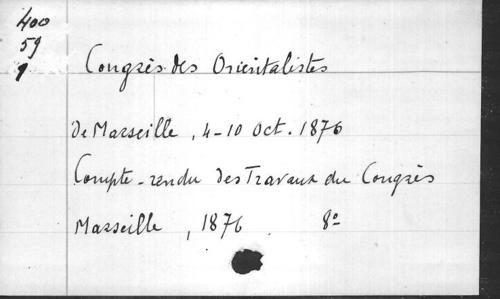 400
59
1
Congrès des Orientalistes
de Marseille, 4-10 Oct. 1876
Compte-rendu des Travaux du Congrès
Marseille, 1876 8º